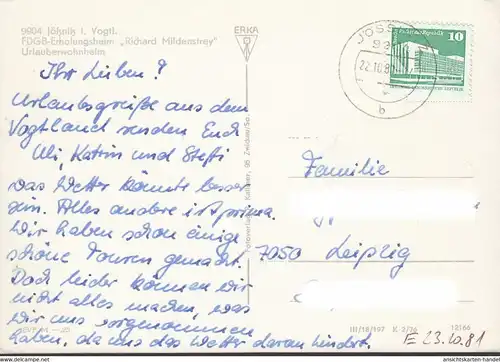 9904 Jößnitz i. Vogtl.
FDGB-Erholungsheim „Richard Mildenstrey“
Urlauberwohnheim
ERKA
JÖSSNITZ
22.10.81
b
10
Ihr Lieben!
Urlaubsgrüße aus dem
Vogtland senden Euch
Uli, Katrin und Steffi
Das Wetter könnte besser
sein. Alles andere ist prima.
Wir haben schon einige
schöne Touren gemacht.
Doch leider können wir
nicht alles machen, was
wir uns vorgenommen
haben, da uns das Wetter daran hindert.
Familie
7050 Leipzig
III/18/197 K 2/76 12166
E 23.10.81